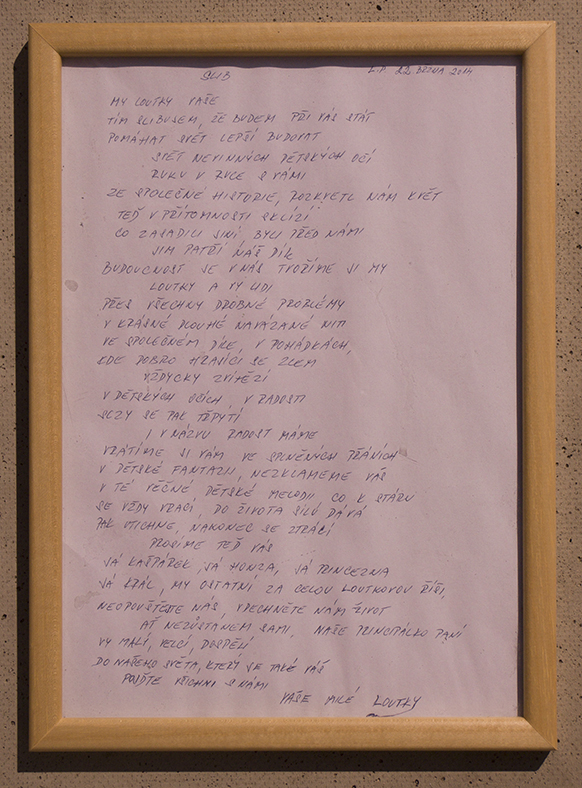 SLIB
L.P. 22. BŘEZNA 2014
MY LOUTKY VAŠE
TÍM SLIBUJEM, ŽE BUDEM PŘI VÁS STÁT
POMÁHAT SVĚT LEPŠÍ BUDOVAT
SVĚT NEVINNÝCH DĚTSKÝCH OČÍ
RUKU V RUCE S VÁMI
ZE SPOLEČNÉ HISTORIE, ROZKVETL NÁM KVĚT
TEĎ V PŘÍTOMNOSTI SKLÍZÍ
CO ZASADILI JINÍ, BYLI PŘED NÁMI
JIM PATŘÍ NÁŠ DÍK
BUDOUCNOST SE V NÁS TVOŘÍME SI MY
LOUTKY A VY LIDI
PŘES VŠECHNY DROBNÉ PROBLÉMY
V KRÁSNÉ DLOUHÉ NAVÁZANÉ NITI
VE SPOLEČNÉM DÍLE, V POHÁDKÁCH,
KDE DOBRO HRAJÍCÍ SE ZLEM
VŽDYCKY ZVÍTĚZÍ
V DĚTSKÝCH OČÍCH, V RADOSTI
SLZY SE PAK TŘPYTÍ
I V NÁZVU RADOST MÁME
VRÁTÍME SI VÁM VE SPLNĚNÝCH PŘÁNÍCH
V DĚTSKÉ FANTAZII, NEZKLAMEME VÁS
V TÉ VĚČNÉ DĚTSKÉ MELODII, CO K STÁRU
SE VŽDY VRACÍ, DO ŽIVOTA SÍLU DÁVÁ
PAK UTICHNE, NAKONEC SE ZTRÁCÍ
PROSÍME TEĎ VÁS
JÁ KAŠPÁREK, JÁ HONZA, JÁ PRINCEZNA
JÁ KRÁL, MY OSTATNÍ ZA CELOU LOUTKOVOU ŘÍŠI,
NEOPOUŠTĚJTE NÁS, VDECHNĚTE NÁM ŽIVOT
AŤ NEZŮSTANEM SAMI, NAŠE PRINCIPÁLKO PANÍ
VY MALÍ, VELCÍ, DOSPĚLÍ
DO NAŠEHO SVĚTA, KTERÝ JE TAKÉ VÁŠ
POJĎTE VŠICHNI S NÁMI
VAŠE MILÉ LOUTKY